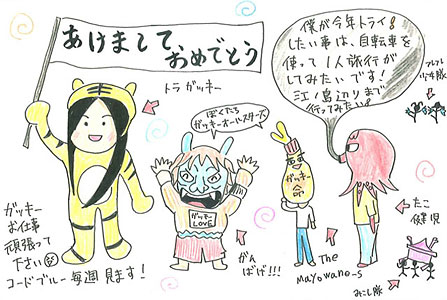 あけまして
おめでとう
トラガッキー
ぼくたち
ガッキーオールスターズ
僕が今年トライ!
したい事は、自転車を
使って1人旅行が
してみたいです!
江ノ島辺りまで
行ってみたい。
ガッキー
お仕事
頑張って
下さい
コードブルー毎週見ます!
ガッキー
LOVE
がん
ばげ!!!
ガッキー
命
The
Mayowane-s
たこ
健児
みこし隊